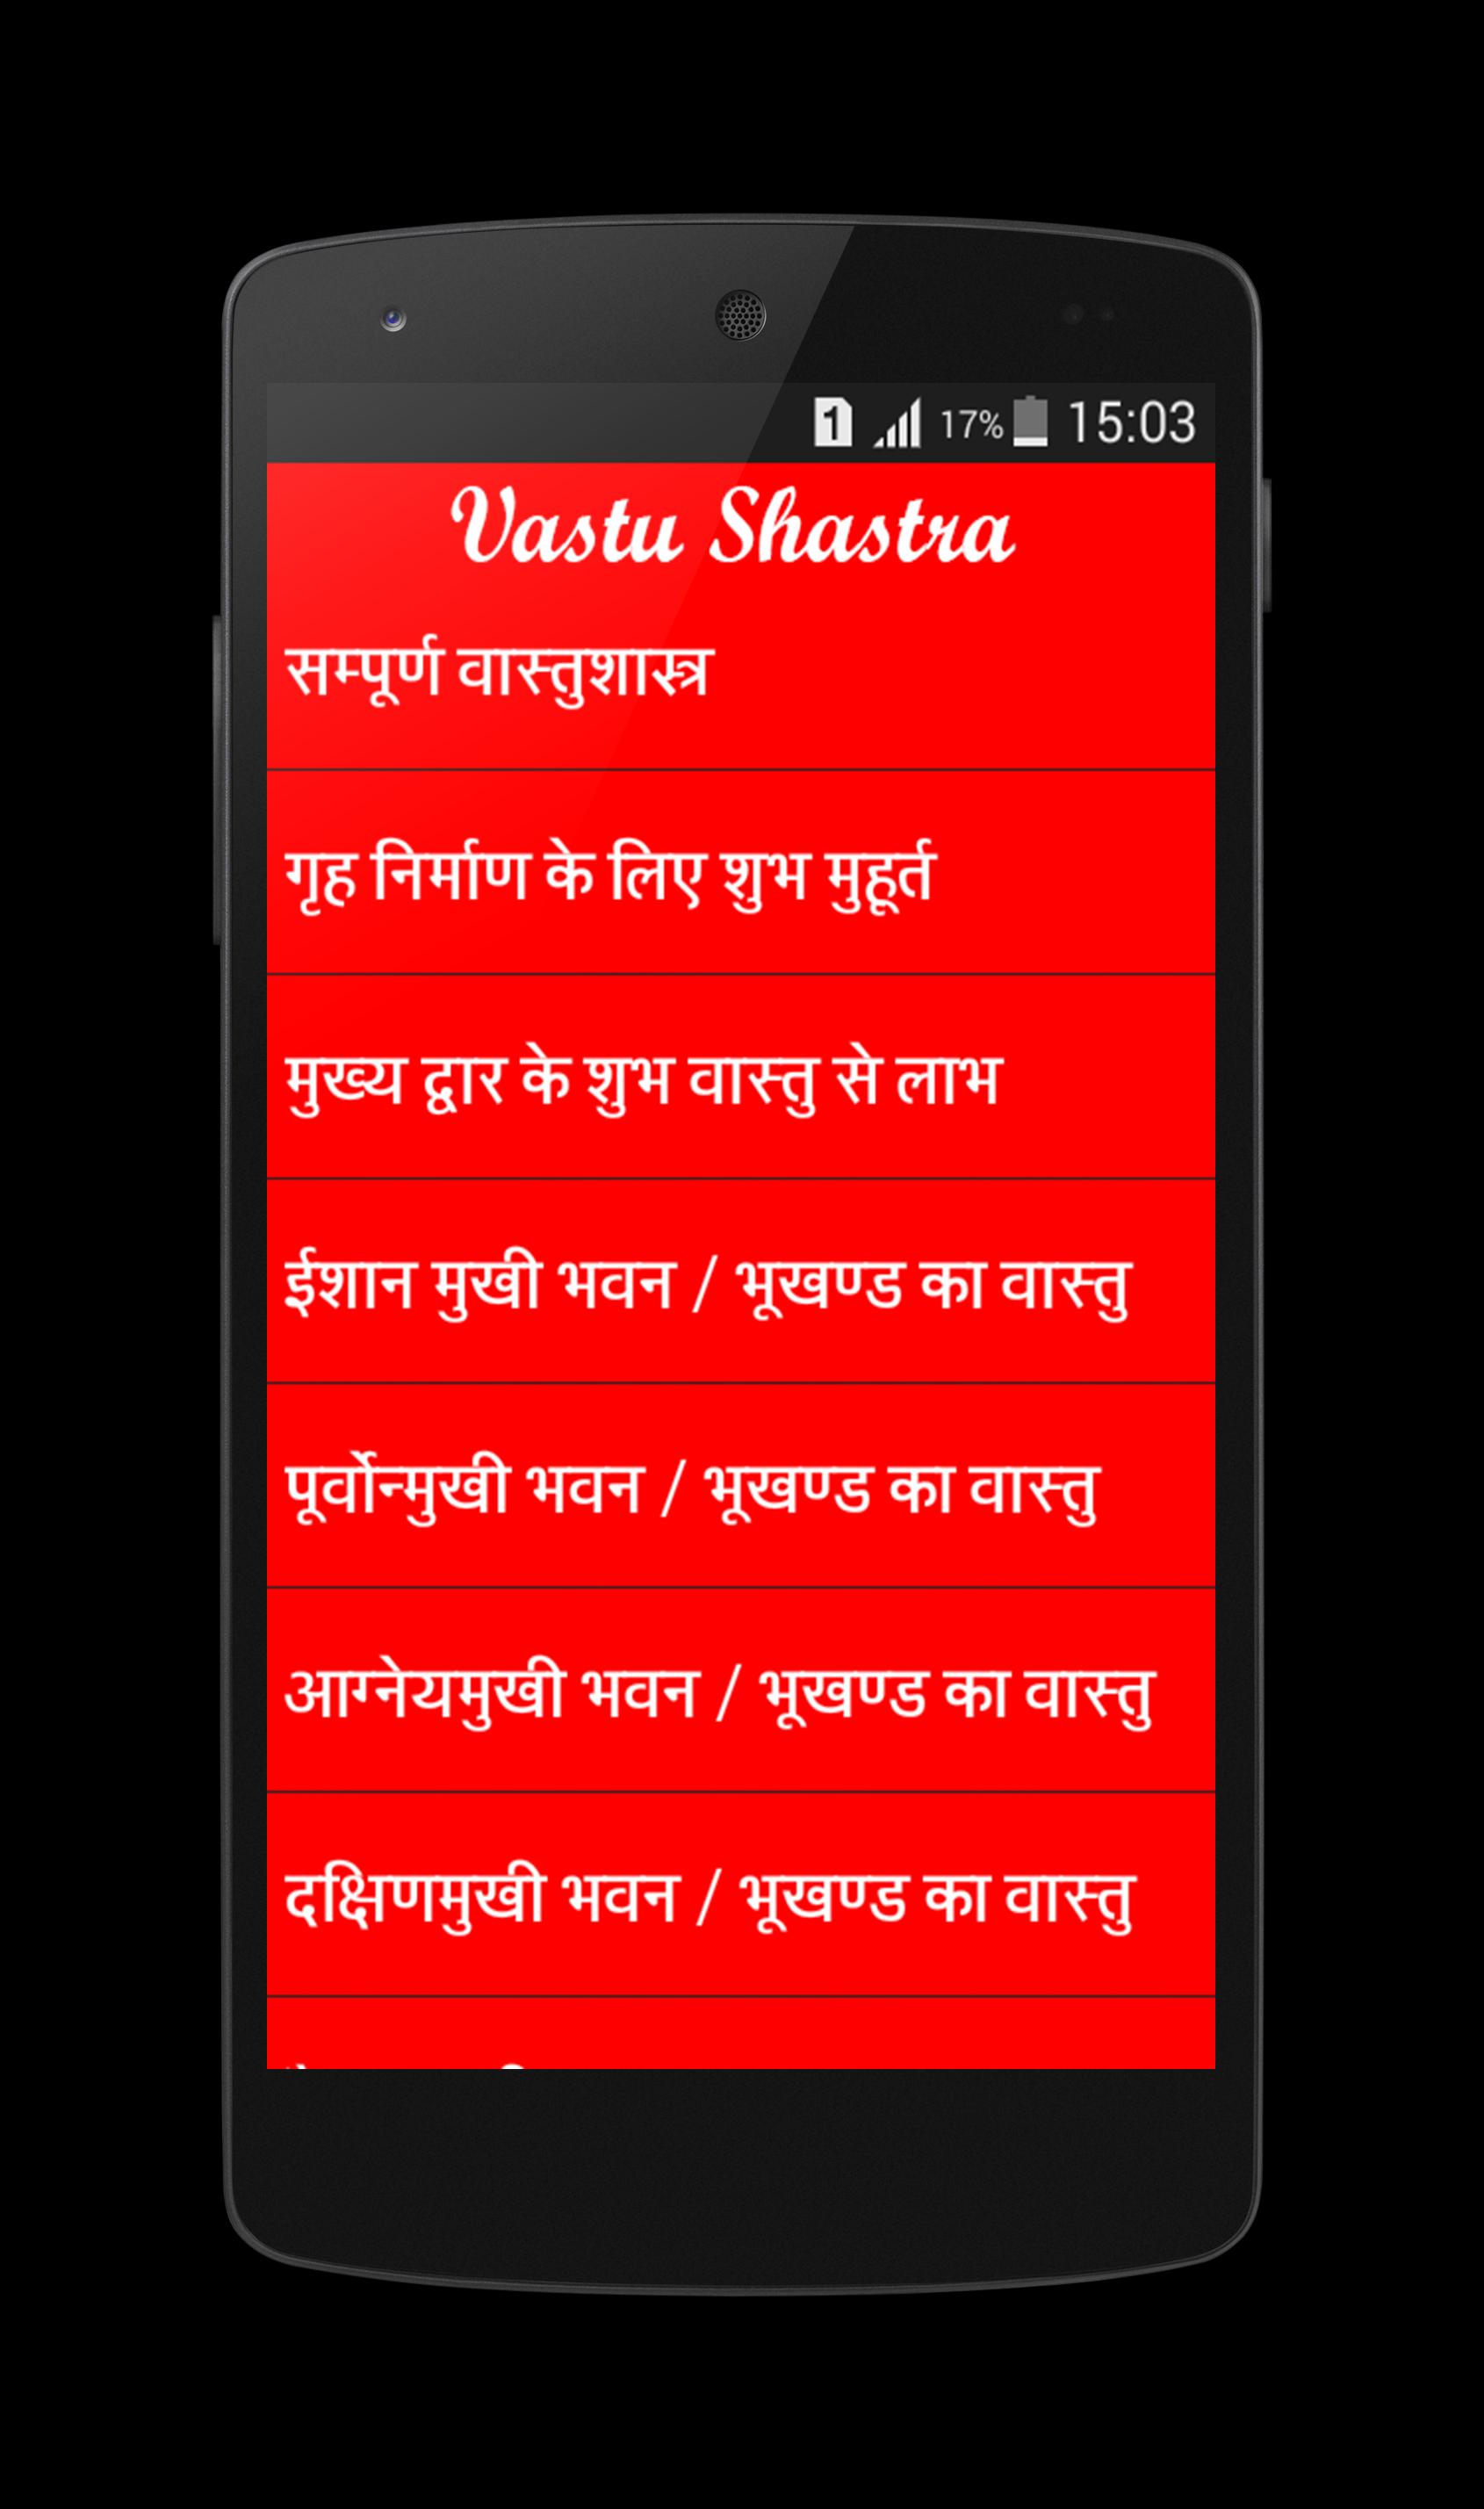 1 17% 15:03
Vastu Shastra
सम्पूर्ण वास्तुशास्त्र
गृह निर्माण के लिए शुभ मुहूर्त
मुख्य द्वार के शुभ वास्तु से लाभ
ईशान मुखी भवन / भूखण्ड का वास्तु
पूर्वोन्मुखी भवन / भूखण्ड का वास्तु
आग्नेयमुखी भवन / भूखण्ड का वास्तु
दक्षिणमुखी भवन / भूखण्ड का वास्तु